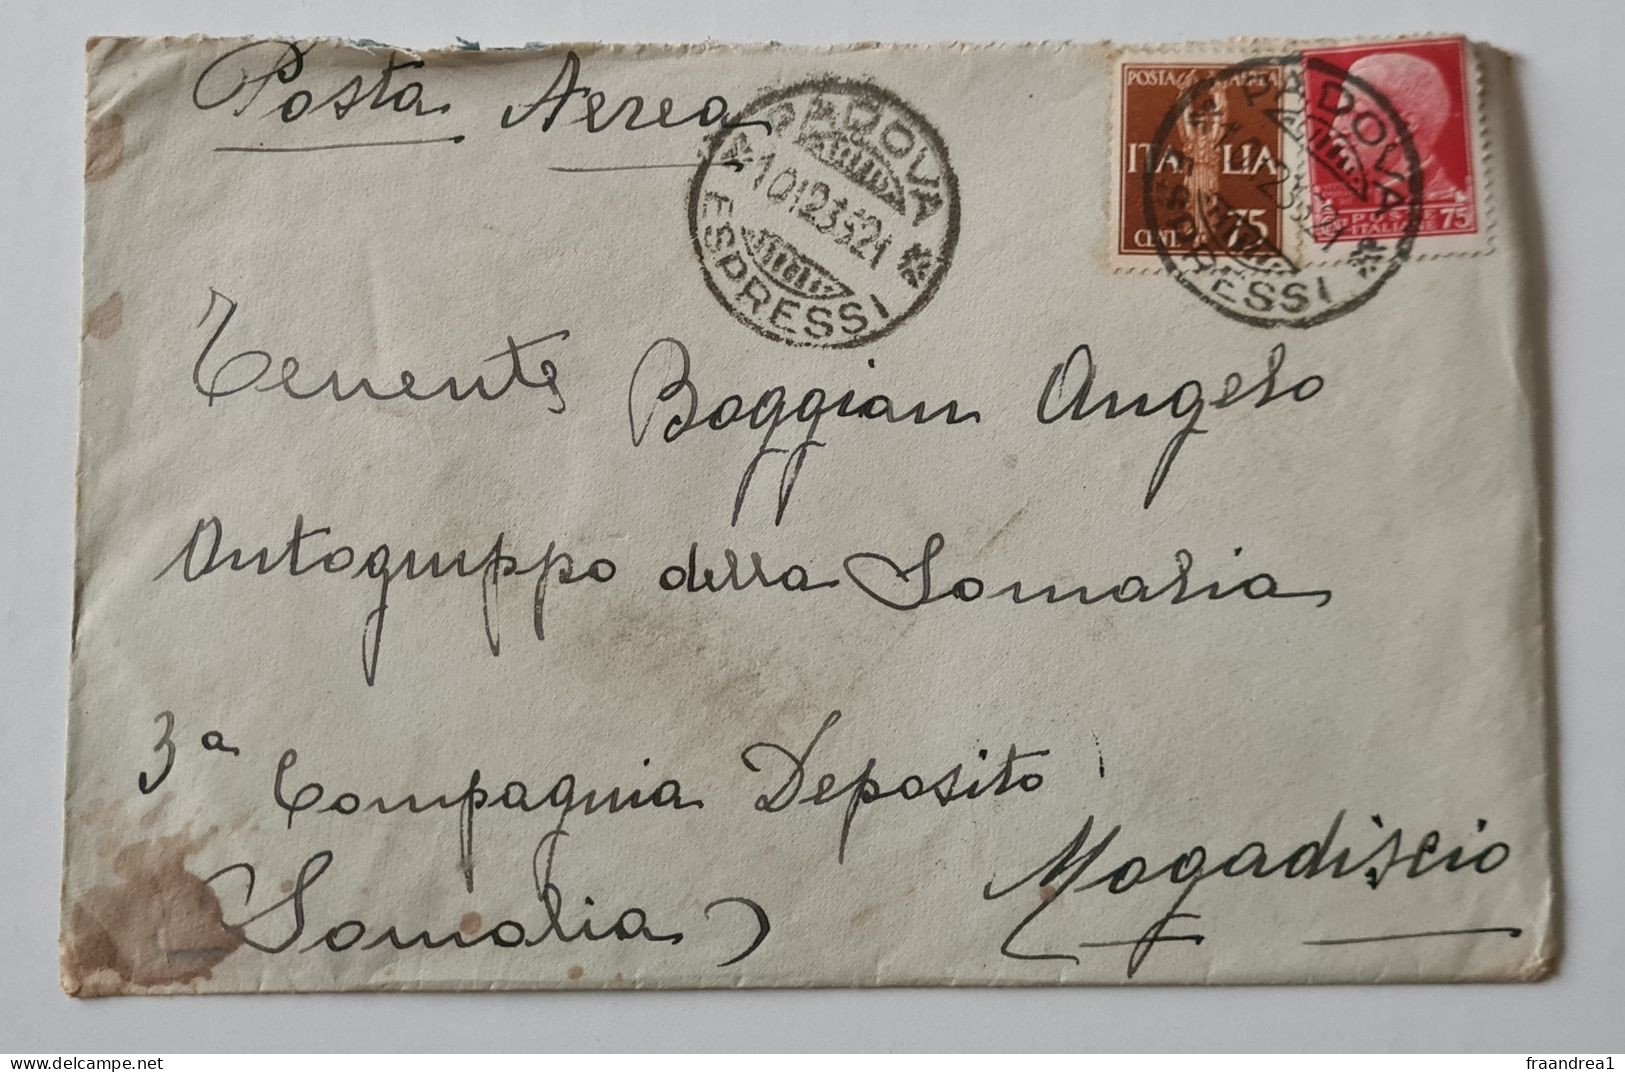 Posta Aerea
PADOVA
10 12 35 21
ESPRESSI
POSTA AEREA
ITALIA
CENT. 75
PADOVA
ESPRESSI
POSTE
ITALIANE 75
Tenente Boggian Angelo
Autogruppo della Somalia
3ª Compagnia Deposito
Mogadiscio
(Somalia)
www.delcampe.net
fraandrea1